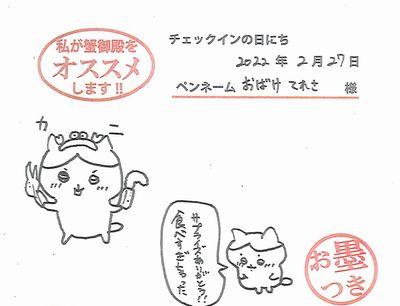 私が蟹御殿を
オススメ
します!!
チェックインの日にち
2022 年 2 月 27 日
ペンネーム おばけ てれさ 様
カニ
サプライズありがとう!!
食べすぎちゃった
お墨
つき